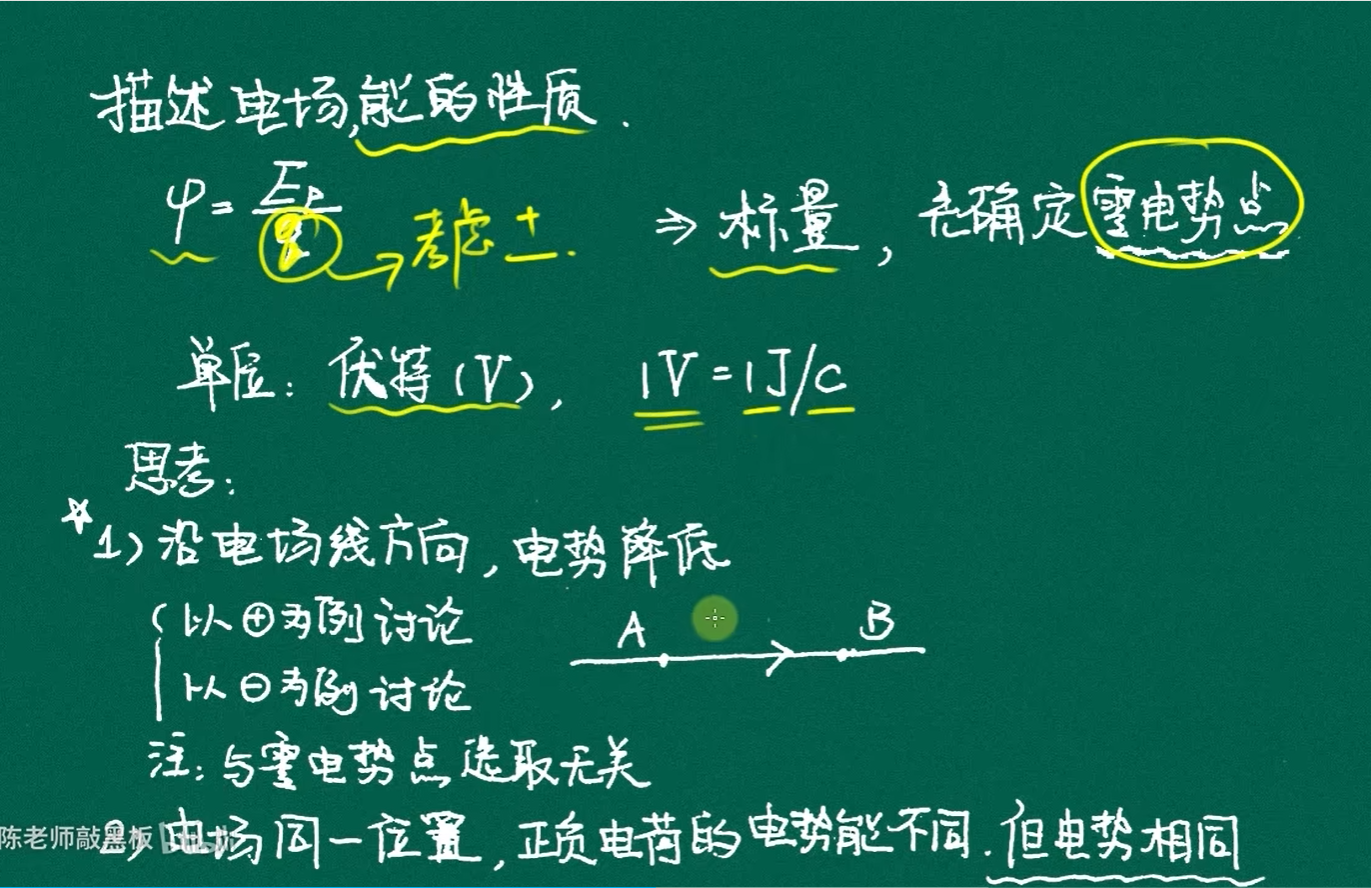 描述电场能的性质.
φ = Ep/q → 考虑 ± . ⇒ 标量, 先确定零电势点
单位: 伏特(V), 1V = 1J/C
思考:
☆ 1) 沿电场线方向, 电势降低
以⊕为例讨论
A B
以⊖为例讨论
注: 与零电势点选取无关
2) 电场同一位置, 正负电荷的电势能不同. 但电势相同
陈老师敲黑板 bilibili